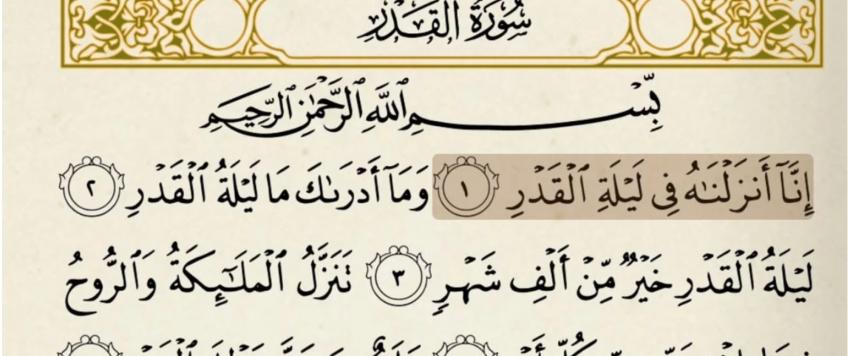 سُورَةُ الْقَدْرِ
بِّسْمِ اللَّهِ الرَّحْمَٰنِ الرَّحِيمِ
إِنَّآ أَنزَلْنَٰهُ فِى لَيْلَةِ ٱلْقَدْرِ ١ وَمَآ أَدْرَىٰكَ مَا لَيْلَةُ ٱلْقَدْرِ ٢
لَيْلَةُ ٱلْقَدْرِ خَيْرٌ مِّنْ أَلْفِ شَهْرٍ ٣ تَنَزَّلُ ٱلْمَلَٰٓئِكَةُ وَٱلرُّوحُ